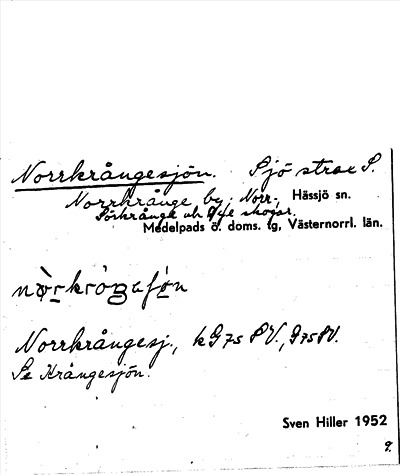 Norrkrångesjön. Sjö strax S.
Norrkrånge by. Norr-, Hässjö sn.
Sörkrånge och skogar.
Medelpads ö. doms. tg, Västernorrl. län.
Norrkrångesj., kG75 SV., G75SV.
Se Krångesjön.
Sven Hiller 1952
9.